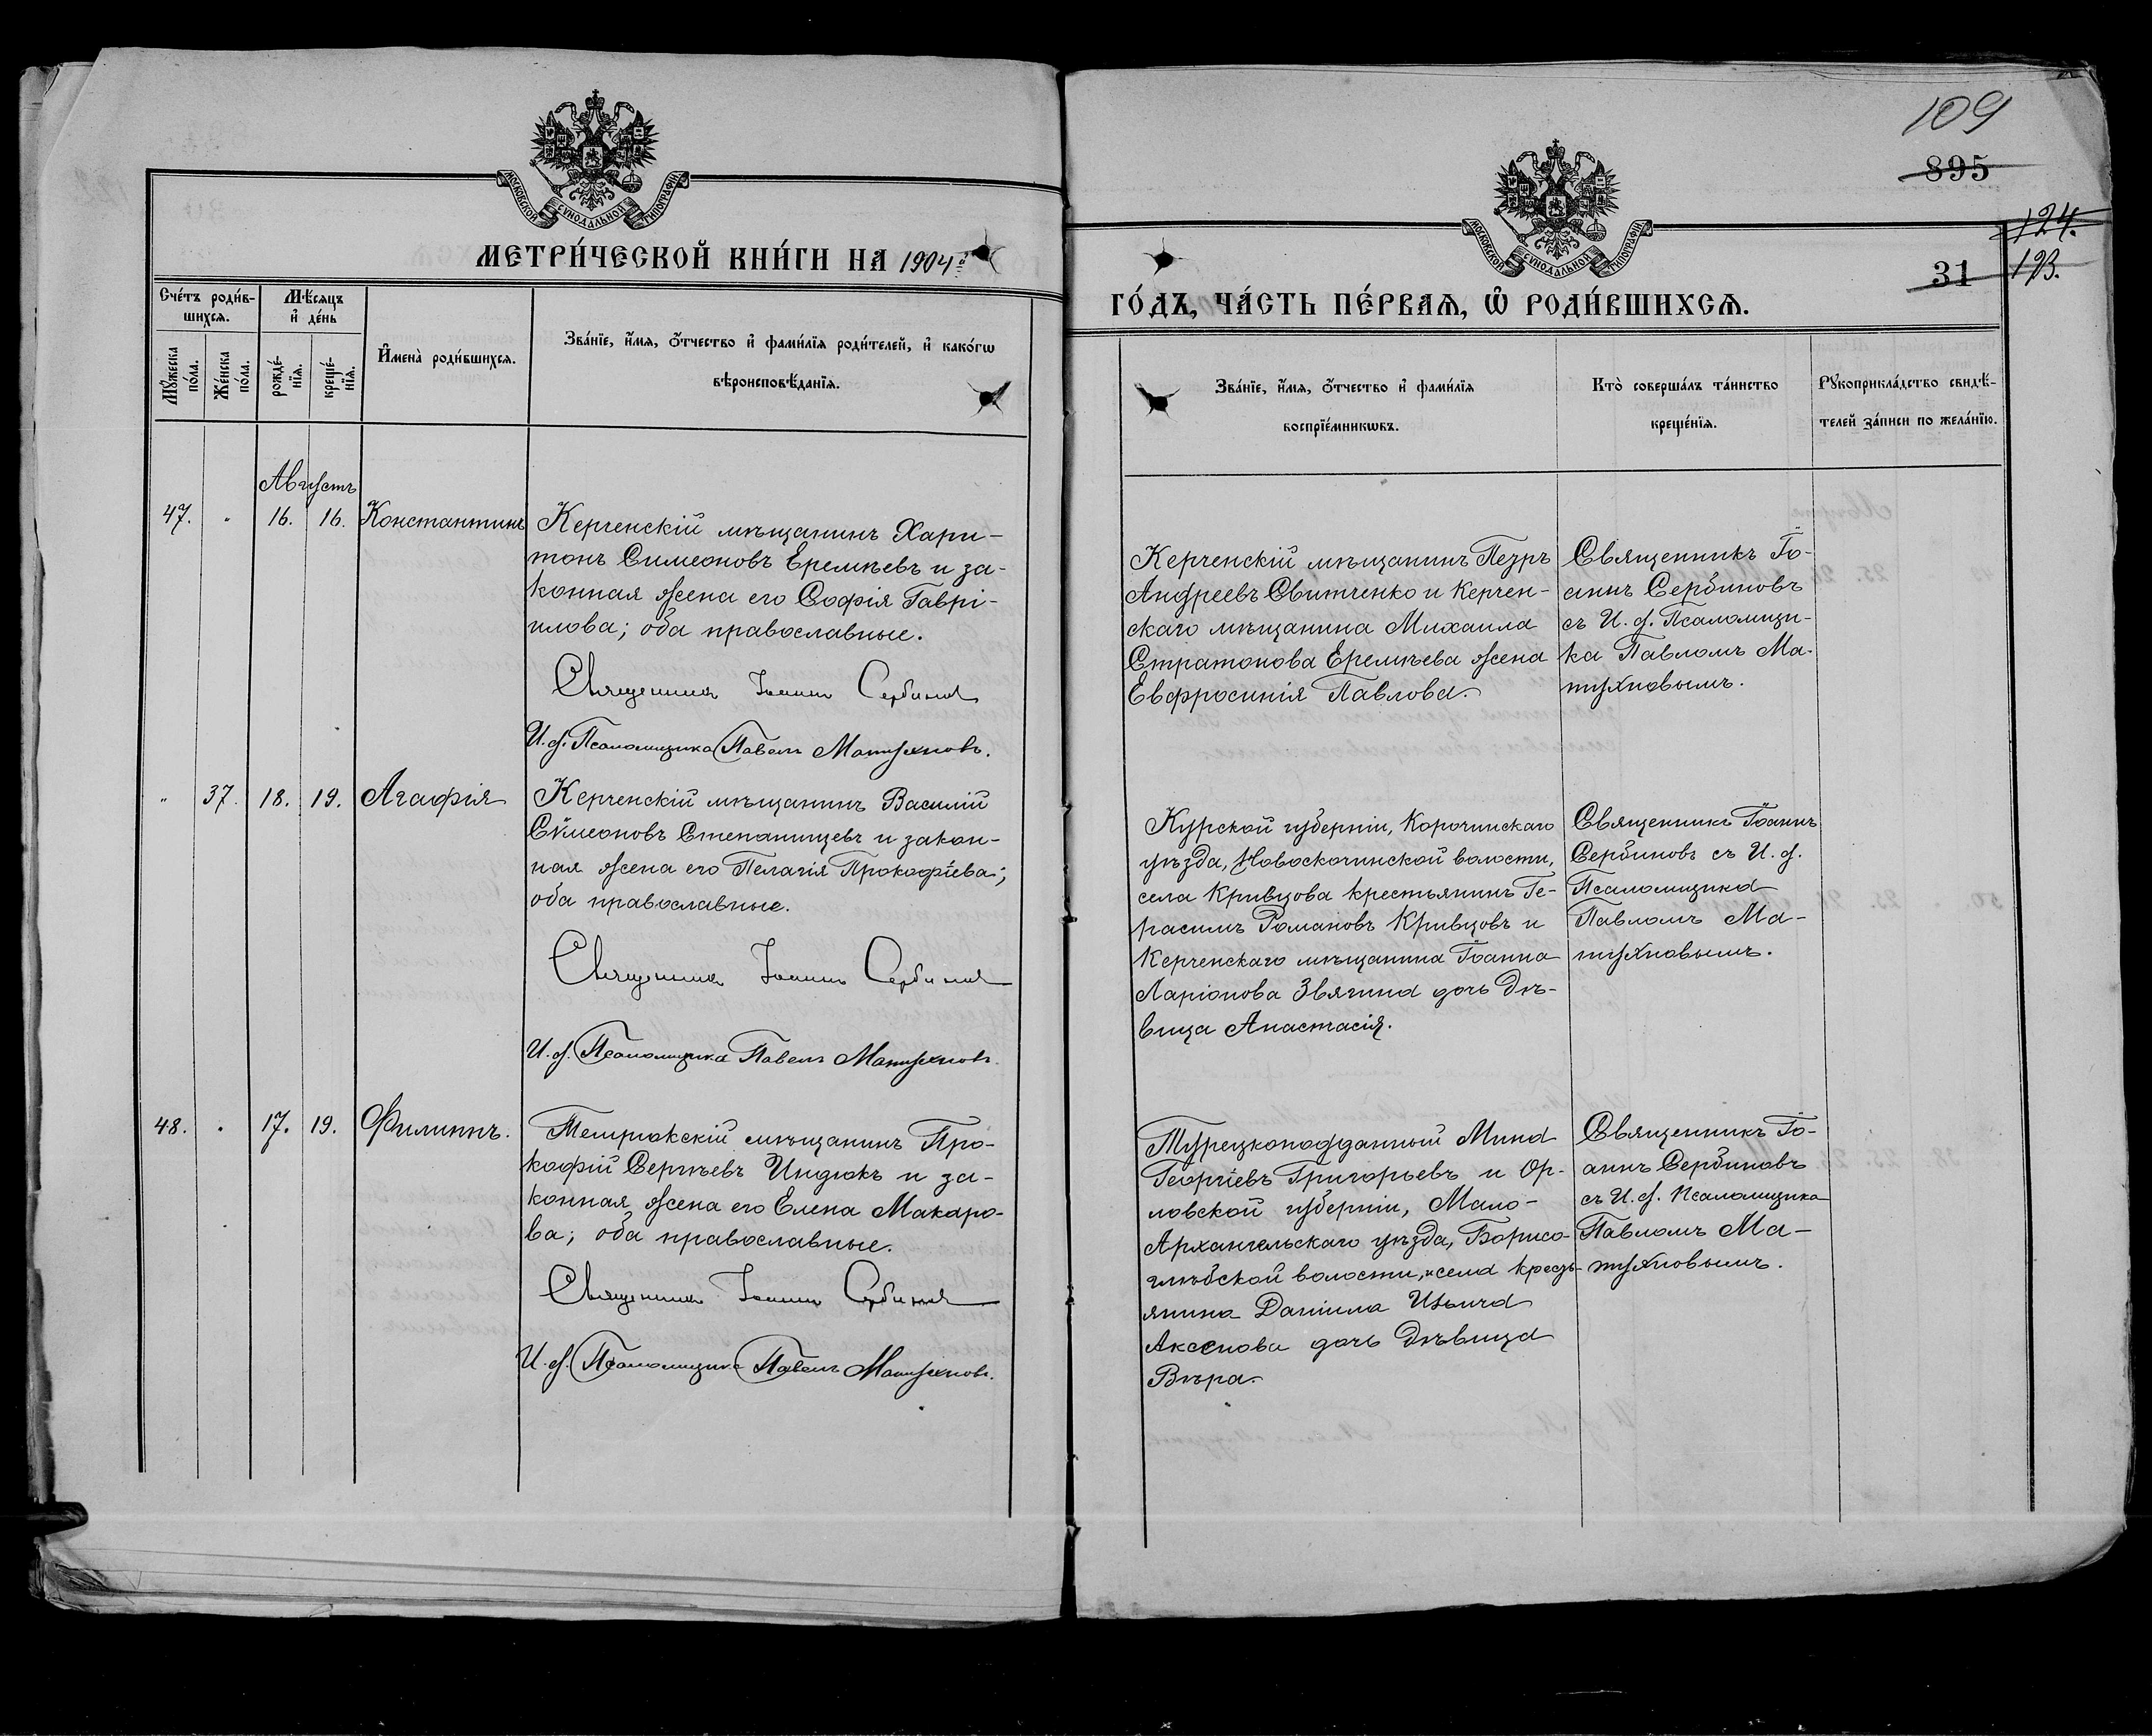 109
895
124.
123.
31
МОСКОВСКОЙ СѴНОДАЛЬНОЙ ТИПОГРАФІИ
МОСКОВСКОЙ СѴНОДАЛЬНОЙ ТИПОГРАФІИ
МЕТРИ́ЧЕСКОЙ КНИ́ГИ НА 1904й
ГО́ДЪ, ЧА́СТЬ ПЕ́РВАѦ, Ѽ РОДИ́ВШИХСѦ.
Сче́тъ роди́в-
шихсѧ.
Мѣ́сѧцъ
и҆ де́нь
Мꙋ́жеска
по́ла.
Же́нска
по́ла.
рожде́-
нїѧ.
креще́-
нїѧ.
И҆мена̀ роди́вшихсѧ.
Зва́нїе, и҆́мѧ, ѻ҆́тчество и҆ фами́лїѧ роди́телей, и҆ како́гѡ
вѣроисповѣ́данїѧ.
Зва́нїе, и҆́мѧ, ѻ҆́тчество и҆ фами́лїѧ
воспрїе́мникѡвъ.
Кто̀ соверша́лъ та́инство
креще́нїѧ.
Рꙋкоприкла́дство свидѣ́-
телей за́писи по жела́нїю.
Августъ
47. " 16. 16. Константинъ
Керченскій мѣщанинъ Хари-
тонъ Симеоновъ Еремѣевъ и за-
конная жена его Софія Гаврі-
илова; оба православные.
Священникъ Іоаннъ Сербиновъ
И. д. Псаломщика Павелъ Матухновъ.
Керченскій мѣщанинъ Петръ
Андреевъ Свитченко и Керчен-
скаго мѣщанина Михаила
Стратонова Еремѣева жена
Евфросинія Павлова.
Священникъ Іо-
аннъ Сербиновъ
съ И. д. Псаломщи-
ка Павломъ Ма-
тухновымъ.
" 37. 18. 19. Агафія
Керченскій мѣщанинъ Василій
Сѷмеоновъ Степанищевъ и закон-
ная жена его Пелагія Прокофіева;
оба православные.
Священникъ Іоаннъ Сербиновъ
И. д. Псаломщика Павелъ Матухновъ.
Курской губерніи, Корочинскаго
уѣзда, Новоскочинской волости,
села Кривцова крестьянинъ Ге-
расимъ Романовъ Кривцовъ и
Керченскаго мѣщанина Іоанна
Ларіонова Звягина дочь дѣ-
вица Анастасія.
Священникъ Іоаннъ
Сербиновъ съ И. д.
Псаломщика
Павломъ Ма-
тухновымъ.
48. " 17. 19. Филиппъ.
Темрюкскій мѣщанинъ Про-
кофій Сергѣевъ Индюкъ и за-
конная жена его Елена Макаро-
ва; оба православные.
Священникъ Іоаннъ Сербиновъ
И. д. Псаломщика Павелъ Матухновъ.
Турецкоподданный Мина
Георгіевъ Григорьевъ и Ор-
ловской губерніи, Мало-
Архангельскаго уѣзда, Борисо-
глѣбской волости, села крест-
янина Даніила Ильича
Аксенова дочь дѣвица
Вѣра.
Священникъ Іо-
аннъ Сербиновъ
съ И. д. Псаломщика
Павломъ Ма-
тухновымъ.